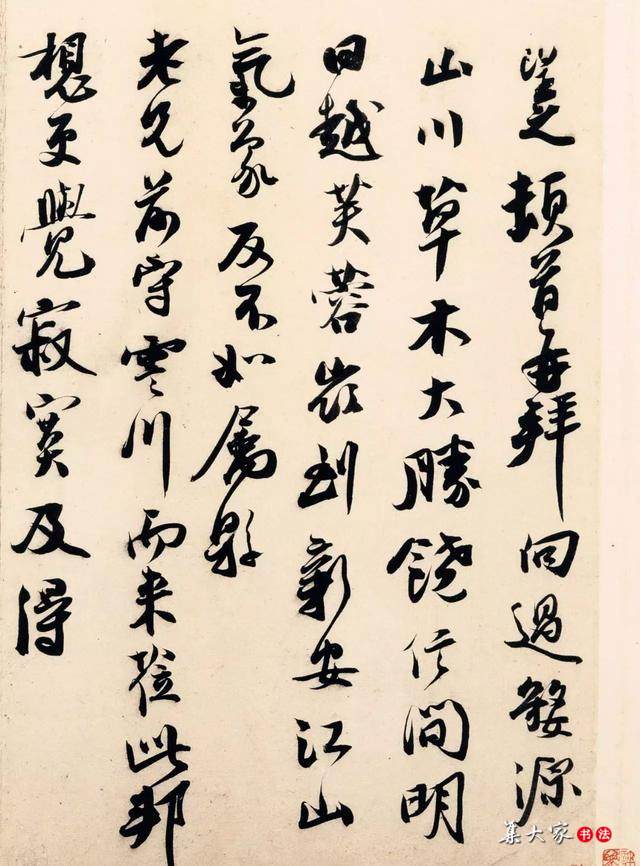 頓首再拜向過婺源
山川草木大勝饒信間明
日越芙蓉嶺到新安江山
氣象反不如屬縣
老兄前守霅川而来蒞此邦
想更覺寂寞及得
集大家書法